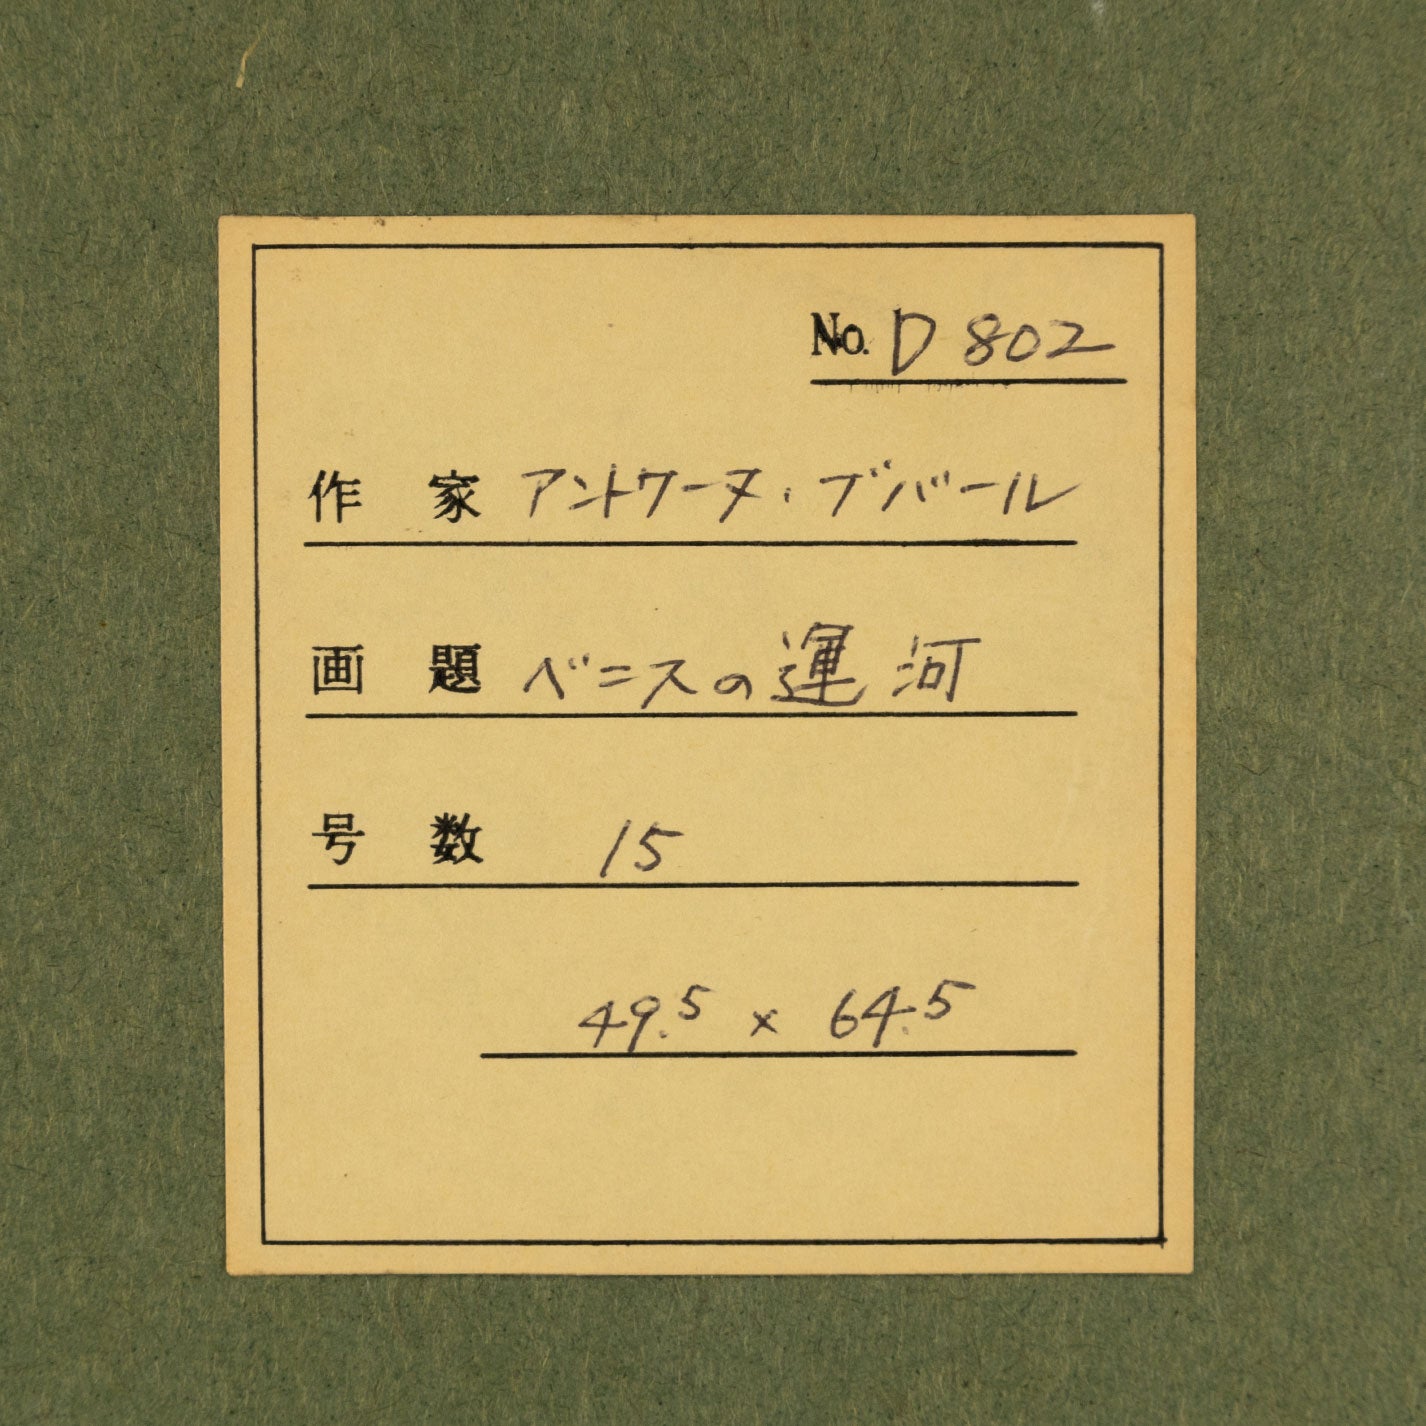 No. D 802
作家 アントワーヌ・ブバール
画題 ベニスの運河
号数 15
49.5 × 64.5